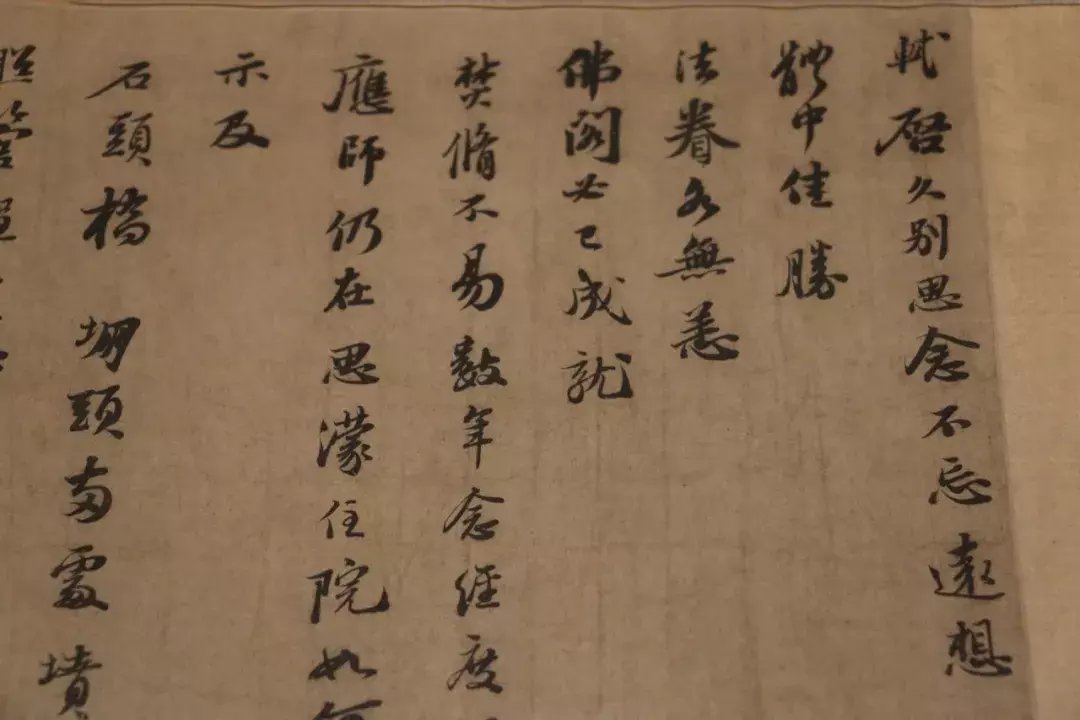 軾啓久別思念不忘遠想
體中佳勝
法眷各無恙
佛閣必已成就
焚脩不易數年念經度
應師仍在思濛住院如何
示及
石頭橋 堋頭兩處墳